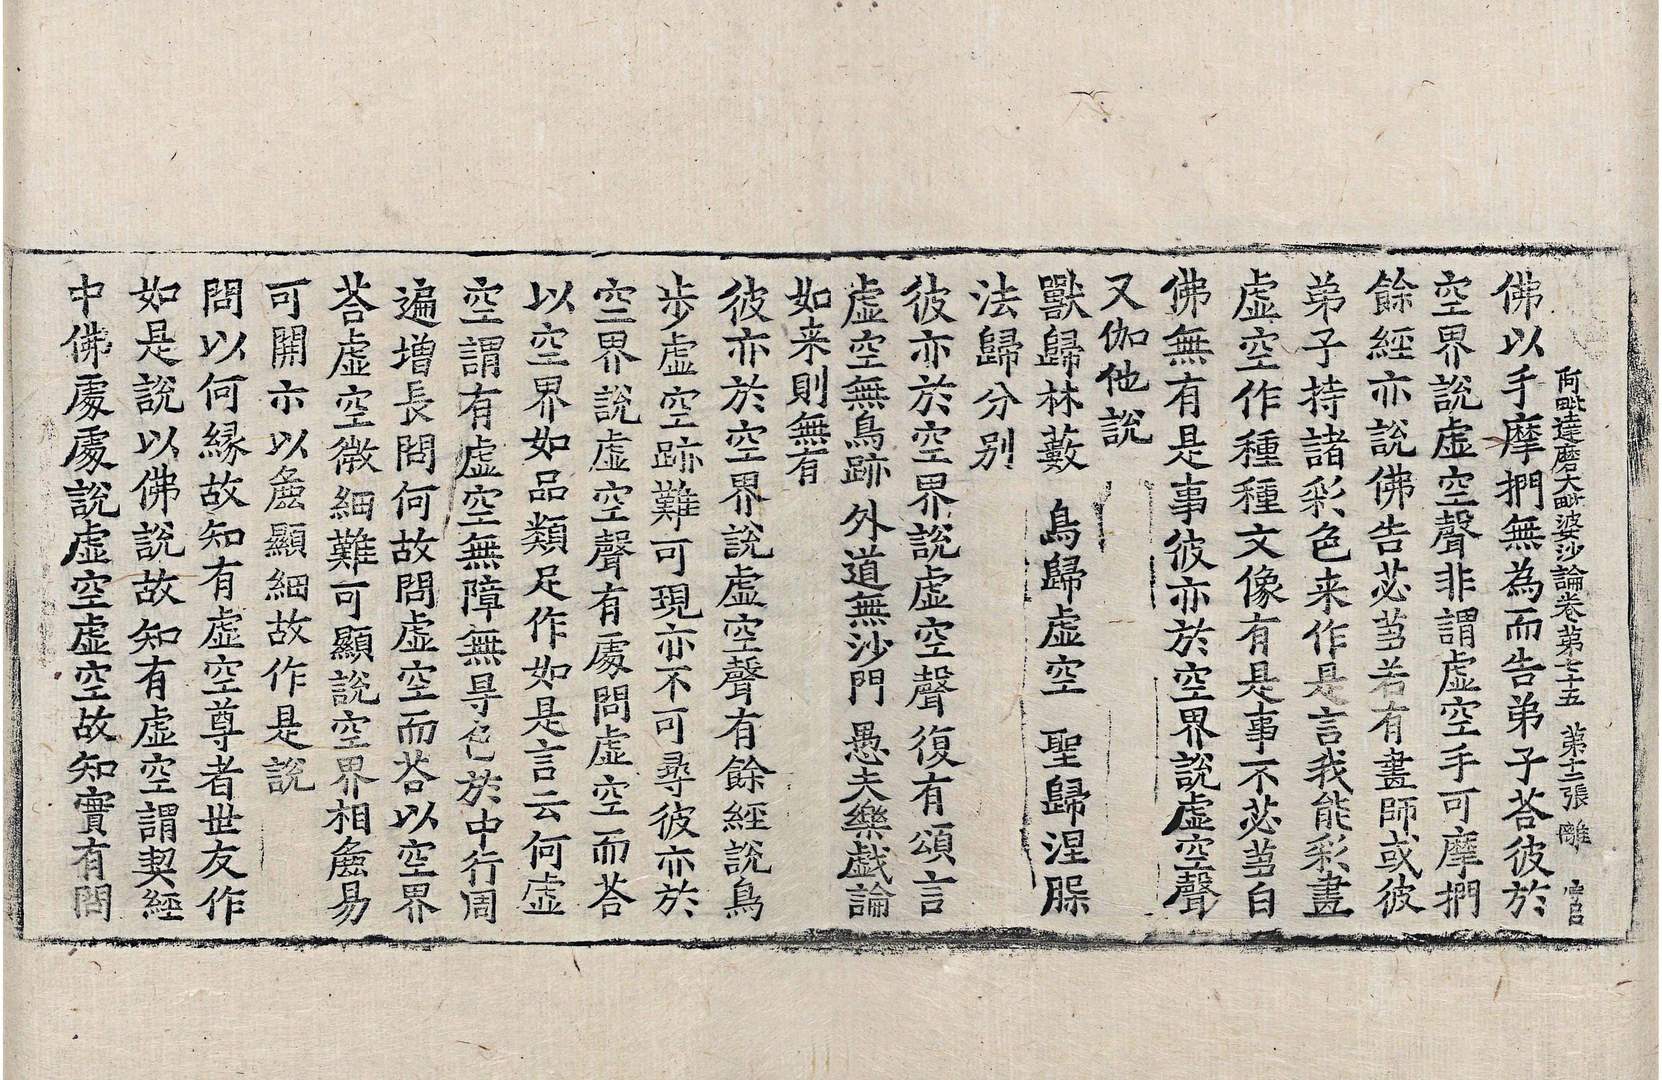 阿毗達磨大毗婆沙論卷第七十五 第十二張 雕
佛以手摩捫無為而告弟子荅彼於
空界說虛空聲非謂虛空手可摩捫
餘經亦說佛告苾芻若有畫師或彼
弟子持諸彩色来作是言我能彩畫
虛空作種種文像有是事不苾芻白
佛無有是事彼亦於空界說虛空聲
又伽他說
獸歸林藪 鳥歸虛空 聖歸涅槃
法歸分別
彼亦於空界說虛空聲復有頌言
虛空無鳥跡 外道無沙門 愚夫樂戱論
如来則無有
彼亦於空界說虛空聲有餘經說鳥
步虛空跡難可現亦不可尋彼亦於
空界說虛空聲有處問虛空而荅
以空界如品類足作如是言云何虛
空謂有虛空無障無㝵色於中行周
遍增長問何故問虛空而荅以空界
荅虛空微細難可顯說空界相麁易
可開示以麁顯細故作是說
問以何縁故知有虛空尊者世友作
如是說以佛說故知有虛空謂契經
中佛處處說虛空虛空故知實有問